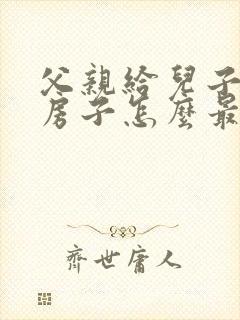 父親給兒子
房子怎麼最
齊世庸人